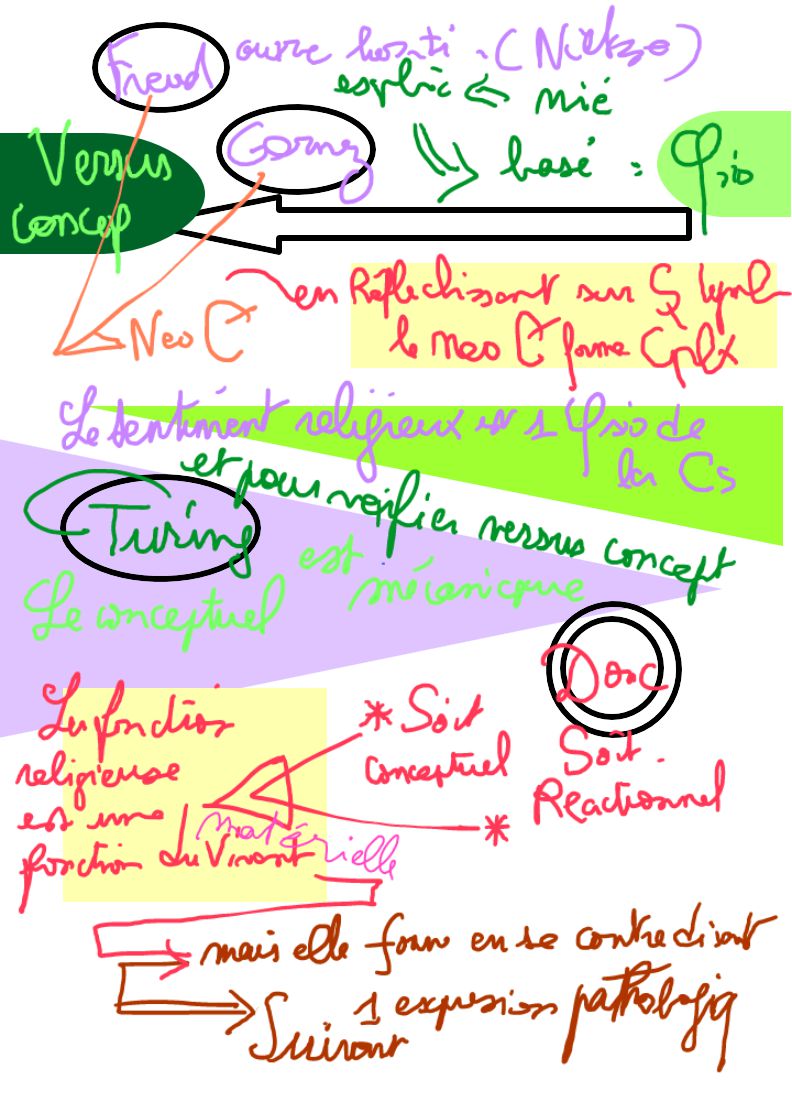 Freud
(Nietzse)
esplic ⇐ nié
Gomez
basé : φsio
Versus
concep
Neo C
en Réflechissant sur
le neo C forme Cplx
Le sentiment religieux est 1 φsio de
la Cs
et pour vérifier versus concept
Turing
Le conceptuel est mécanique
Donc
La fonction
religieuse
est une
fonction du Vivant
matérielle
* Soit
conceptuel
Soit
Réactionnel
*
mais elle form en se contredisant
1 expression pathologiq
Suivant